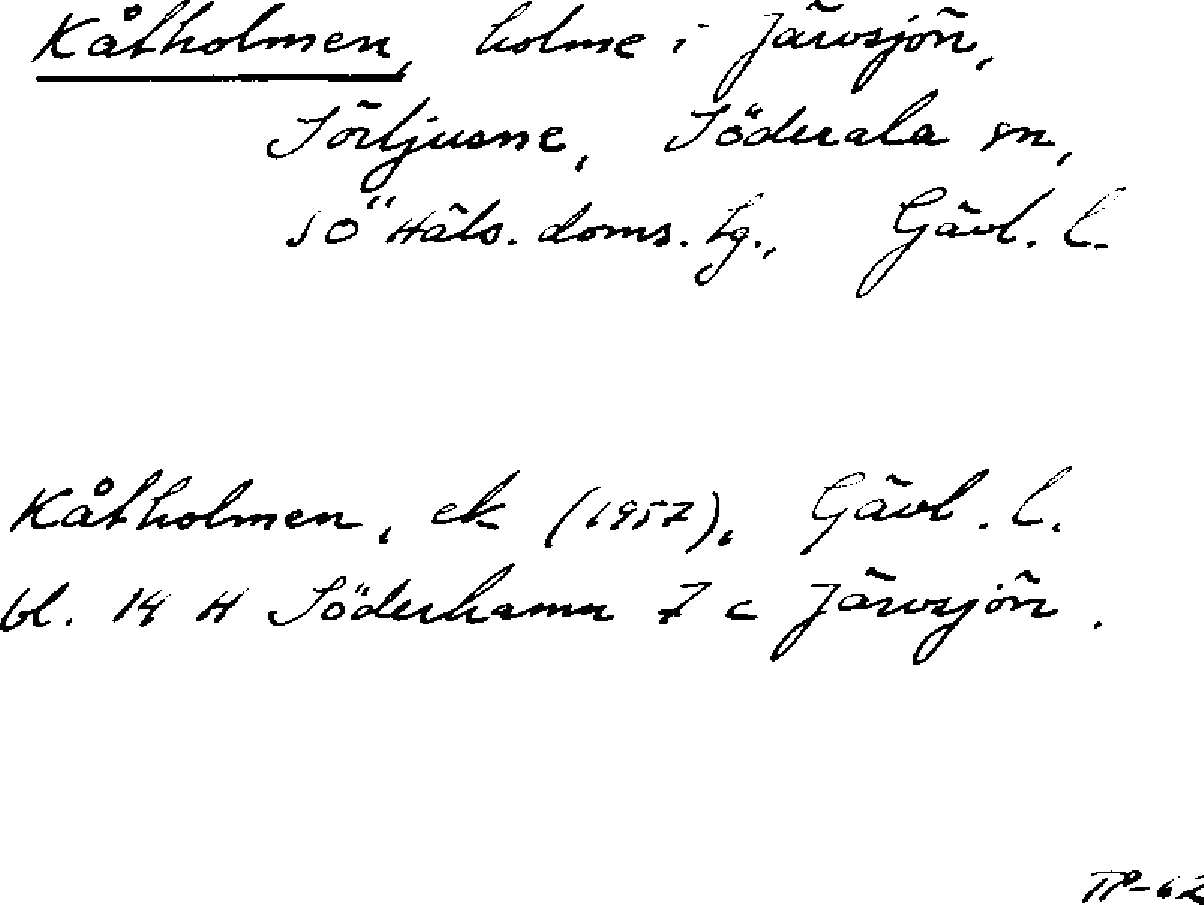 Kåtholmen, holme i Järvsjön,
Sörljusne, Söderala sn,
SÖ Häls. doms. tg., Gävl. l.
Kåtholmen, ek (1957), Gävl. l.
bl. 14 H Söderhamn 7 c Järvsjön.
TP-62